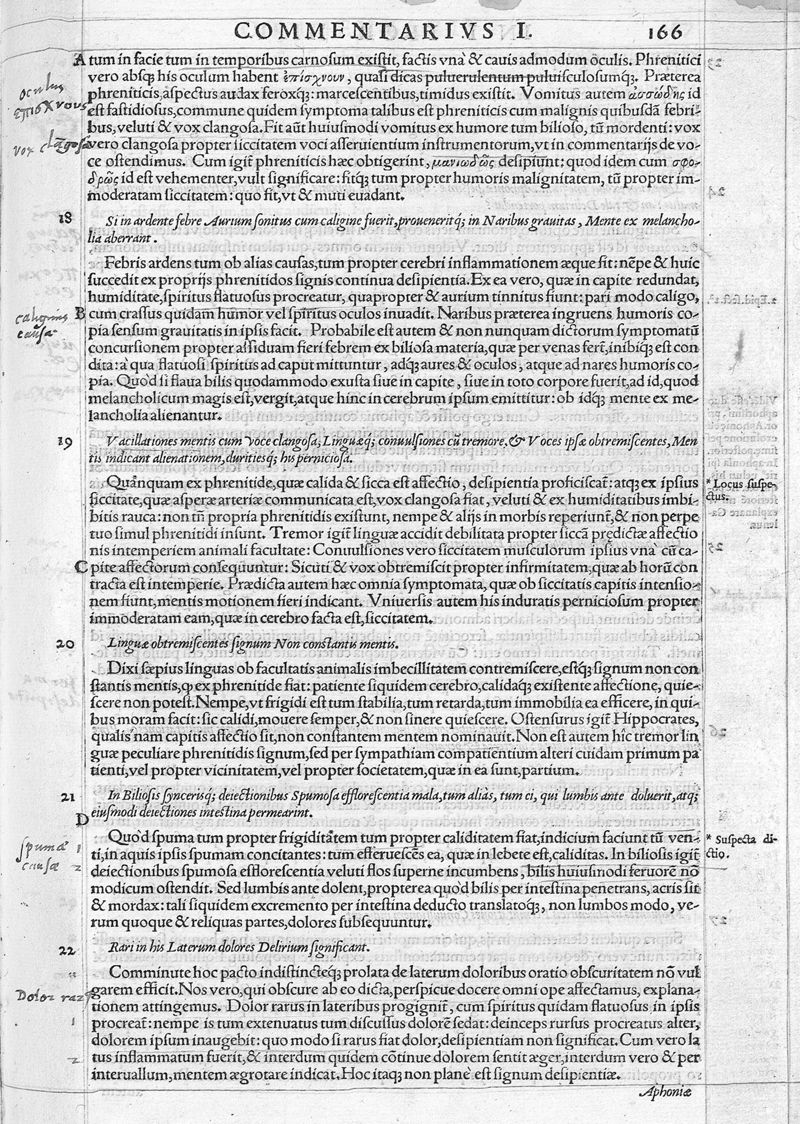 COMMENTARIVS I. 166
A tum in facie tum in temporibus carnosum existit, factis vna' & cauis admodum oculis. Phrenitici
vero absq; his oculum habent ἐπίσχνουν, quasi dicas puluerulentum puluisculosumq;. Præterea
phreniticis, aspectus audax feroxq;: marcescentibus, timidus existit. Vomitus autem ἀσσώδης id
est fastidiosus, commune quidem symptoma talibus est phreniticis cum malignis quibusdã febri-
bus, veluti & vox clangosa. Fit aũt huiusmodi vomitus ex humore tum bilioso, tũ mordenti: vox
vero clangosa propter siccitatem voci asseruientium instrumentorum, vt in commentarijs de vo-
ce ostendimus. Cum igit̃ phreniticis hæc obtigerint, μανιωδῶς desipiunt: quod idem cum σφο-
δρῶς id est vehementer, vult significare: fitq; tum propter humoris malignitatem, tũ propter im-
moderatam siccitatem: quo fit, vt & muti euadant.
oculus
ἐπισχνους
vox clagosa
18 Si in ardente febre Aurium sonitus cum caligine fuerit, prouenerítq; in Naribus grauitas, Mente ex melancho-
lia aberrant.
Febris ardens tum ob alias causas, tum propter cerebri inflammationem æque fit: nẽpe & huic
succedit ex proprijs phrenitidos signis continua desipientia. Ex ea vero, quæ in capite redundat,
humiditate, spiritus flatuosus procreatur, quapropter & aurium tinnitus fiunt: pari modo caligo,
B cum crassus quidam humor vel spiritus oculos inuadit. Naribus præterea ingruens humoris co-
pia sensum grauitatis in ipsis facit. Probabile est autem & non nunquam dictorum symptomatũ
concursionem propter assiduam fieri febrem ex biliosa materia, quæ per venas fert̃, inibiq; est con
dita: a' qua flatuosi spiritus ad caput mittuntur, adq; aures & oculos, atque ad nares humoris co-
pia. Quo'd si flaua bilis quodammodo exusta siue in capite, siue in toto corpore fuerit, ad id, quod
melancholicum magis est, vergit, atque hinc in cerebrum ipsum emittitur: ob idq; mente ex me-
lancholia alienantur.
caliginis
causa
19 Vacillationes mentis cum Voce clangosa, Linguæq; conuulsiones cũ tremore, & Voces ipsæ obtremiscentes, Men
tis indicant alienationem, durities q; his perniciosa.
Quãnquam ex phrenitide, quæ calida & sicca est affectio, desipientia proficiscat̃: atq; ex ipsius
siccitate, quæ asperæ arteriæ communicata est, vox clangosa fiat, veluti & ex humiditatibus imbi-
bitis rauca: non tñ propria phrenitidis existunt, nempe & alijs in morbis reperiunt̃, & non perpe
tuo simul phrenitidi insunt. Tremor igit̃ linguæ accidit debilitata propter siccã prędictæ affectio
nis intemperiem animali facultate: Conuulsiones vero siccitatem musculorum ipsius vna' cũ ca-
C pite affectorum consequuntur: Sicuti & vox obtremiscit propter infirmitatem, quæ ab horũ con
tracta est intemperie. Prædicta autem hæc omnia symptomata, quæ ob siccitatis capitis intensio-
nem fiunt, mentis motionem fieri indicant. Vniuersis autem his induratis perniciosum propter
immoderatam eam, quæ in cerebro facta est, siccitatem.
* Locus suspe-
ctus.
20 Linguæ obtremiscentes signum Non constantis mentis.
Dixi sæpius linguas ob facultatis animalis imbecillitatem contremiscere, estq; signum non con
stantis mentis, qp ex phrenitide fiat: patiente siquidem cerebro, calidaq; existente affectione, quie-
scere non potest. Nempe, vt frigidi est tum stabilia, tum retarda, tum immobilia ea efficere, in qui-
bus moram facit: sic calidi, mouere semper, & non sinere quiescere. Ostensurus igit̃ Hippocrates,
qualis nam capitis affectio sit, non constantem mentem nominauit. Non est autem hic tremor lin
guæ peculiare phrenitidis signum, sed per sympathiam compatientium alteri cuidam primum pa
tienti, vel propter vicinitatem, vel propter societatem, quæ in ea sunt, partium.
21 In Biliosis syncerisq; deiectionibus Spumosa efflorescentia mala, tum alias, tum ei, qui lumbis ante doluerit, atq;
D eiusmodi deiectiones intestina permearint.
Quo'd spuma tum propter frigiditãtem tum propter caliditatem fiat, indicium faciunt tũ ven-
ti, in aquis ipsis spumam concitantes: tum efferuescẽs ea, quæ in lebete est, caliditas. In biliosis igit̃
deiectionibus spumosa efflorescentia veluti flos superne incumbens, bilis huiusmodi feruorẽ nõ
modicum ostendit. Sed lumbis ante dolent, propterea quo'd bilis per intestina penetrans, acris sit
& mordax: tali siquidem excremento per intestina deducto translatoq;, non lumbos modo, ve-
rum quoque & reliquas partes, dolores subsequuntur.
spumæ 1
causæ 2
* Suspecta di-
ctio.
22 Rari in his Laterum dolores Delirium significant.
Comminute hoc pacto indistincteq; prolata de laterum doloribus oratio obscuritatem nõ vul
garem efficit. Nos vero, qui obscure ab eo dicta, perspicue docere omni ope affectamus, explana-
tionem attingemus. Dolor rarus in lateribus progignit̃, cum spiritus quidam flatuosus in ipsis
procreat̃: nempe is tum extenuatus tum discussus dolorẽ sedat: deinceps rursus procreatus alter,
dolorem ipsum inaugebit: quo modo si rarus fiat dolor, desipientiam non significat. Cum vero la
tus inflammatum fuerit, & interdum quidem cõtinue dolorem sentit æger, interdum vero & per
interuallum, mentem ægrotare indicat. Hoc itaq; non plane' est signum desipientiæ.
1
2
Aphoniæ